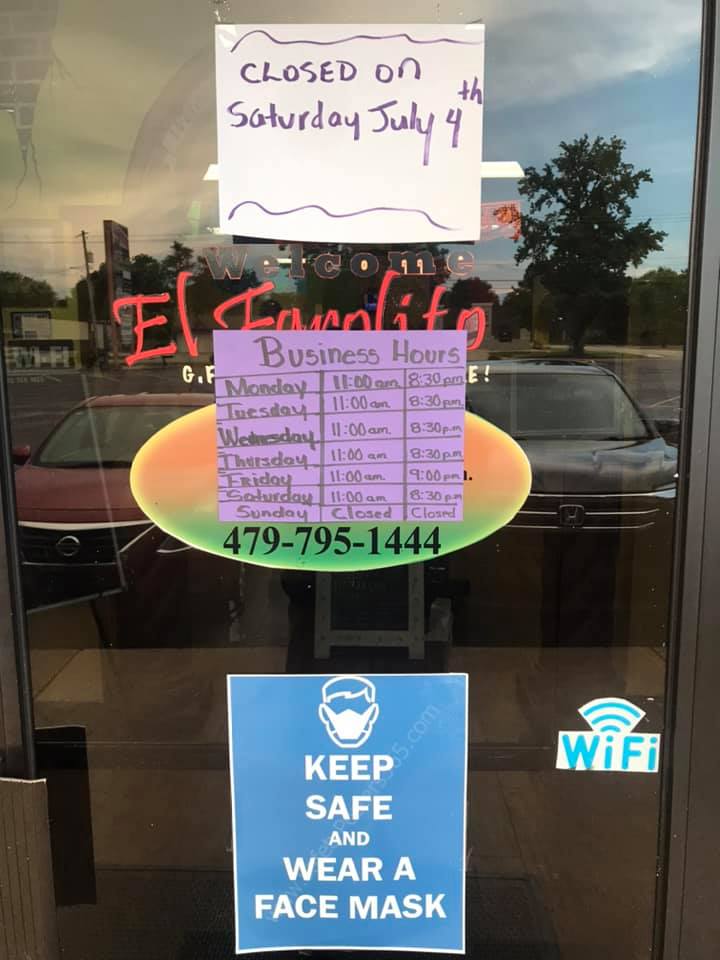 CLOSED On
Saturday July 4th
Welcome
El Farolito
Business Hours
G.F
E!
Monday 11:00 am 8:30 pm
Tuesday 11:00 am 8:30 p.m
Wednesday 11:00 am. 8:30 p.m
Thursday 11:00 am 8:30 p.m
Friday 11:00 am. 9:00 pm
Saturday 11:00 am 8:30 p.m
Sunday Closed Closed
479-795-1444
KEEP
SAFE
AND
WEAR A
FACE MASK
WiFi